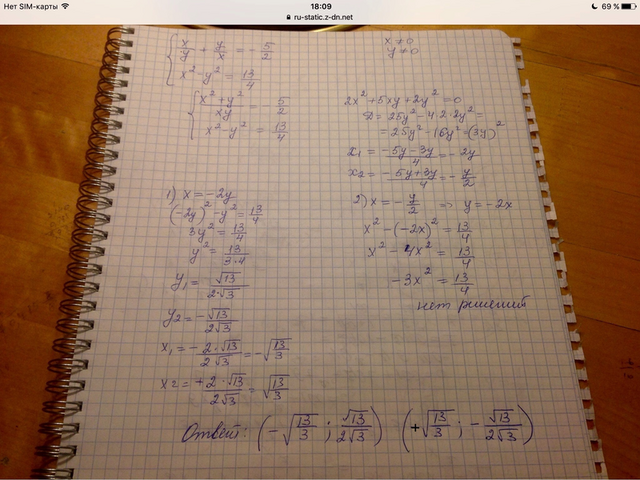 Нет SIM-карты 18:09 69 %
ru-static.z-dn.net
x/y + y/x = - 5/2
x² - y² = 13/4
(x² + y²)/xy = - 5/2
x² - y² = 13/4
x ≠ 0
y ≠ 0
2x² + 5xy + 2y² = 0
D = 25y² - 4·2·2y² =
= 25y² - 16y² = (3y)²
x₁ = (-5y - 3y)/4 = -2y
x₂ = (-5y + 3y)/4 = - y/2
1) x = -2y
(-2y)² - y² = 13/4
3y² = 13/4
y² = 13/(3·4)
y₁ = √13/(2·√3)
y₂ = - √13/(2√3)
x₁ = - (2·√13)/(2√3) = - √(13/3)
x₂ = + (2·√13)/(2√3) = √(13/3)
2) x = - y/2 ⇒ y = -2x
x² - (-2x)² = 13/4
x² - 4x² = 13/4
-3x² = 13/4
нет решений
Ответ: (- √(13/3) ; √13/(2√3)) (+ √(13/3) ; - √13/(2√3))